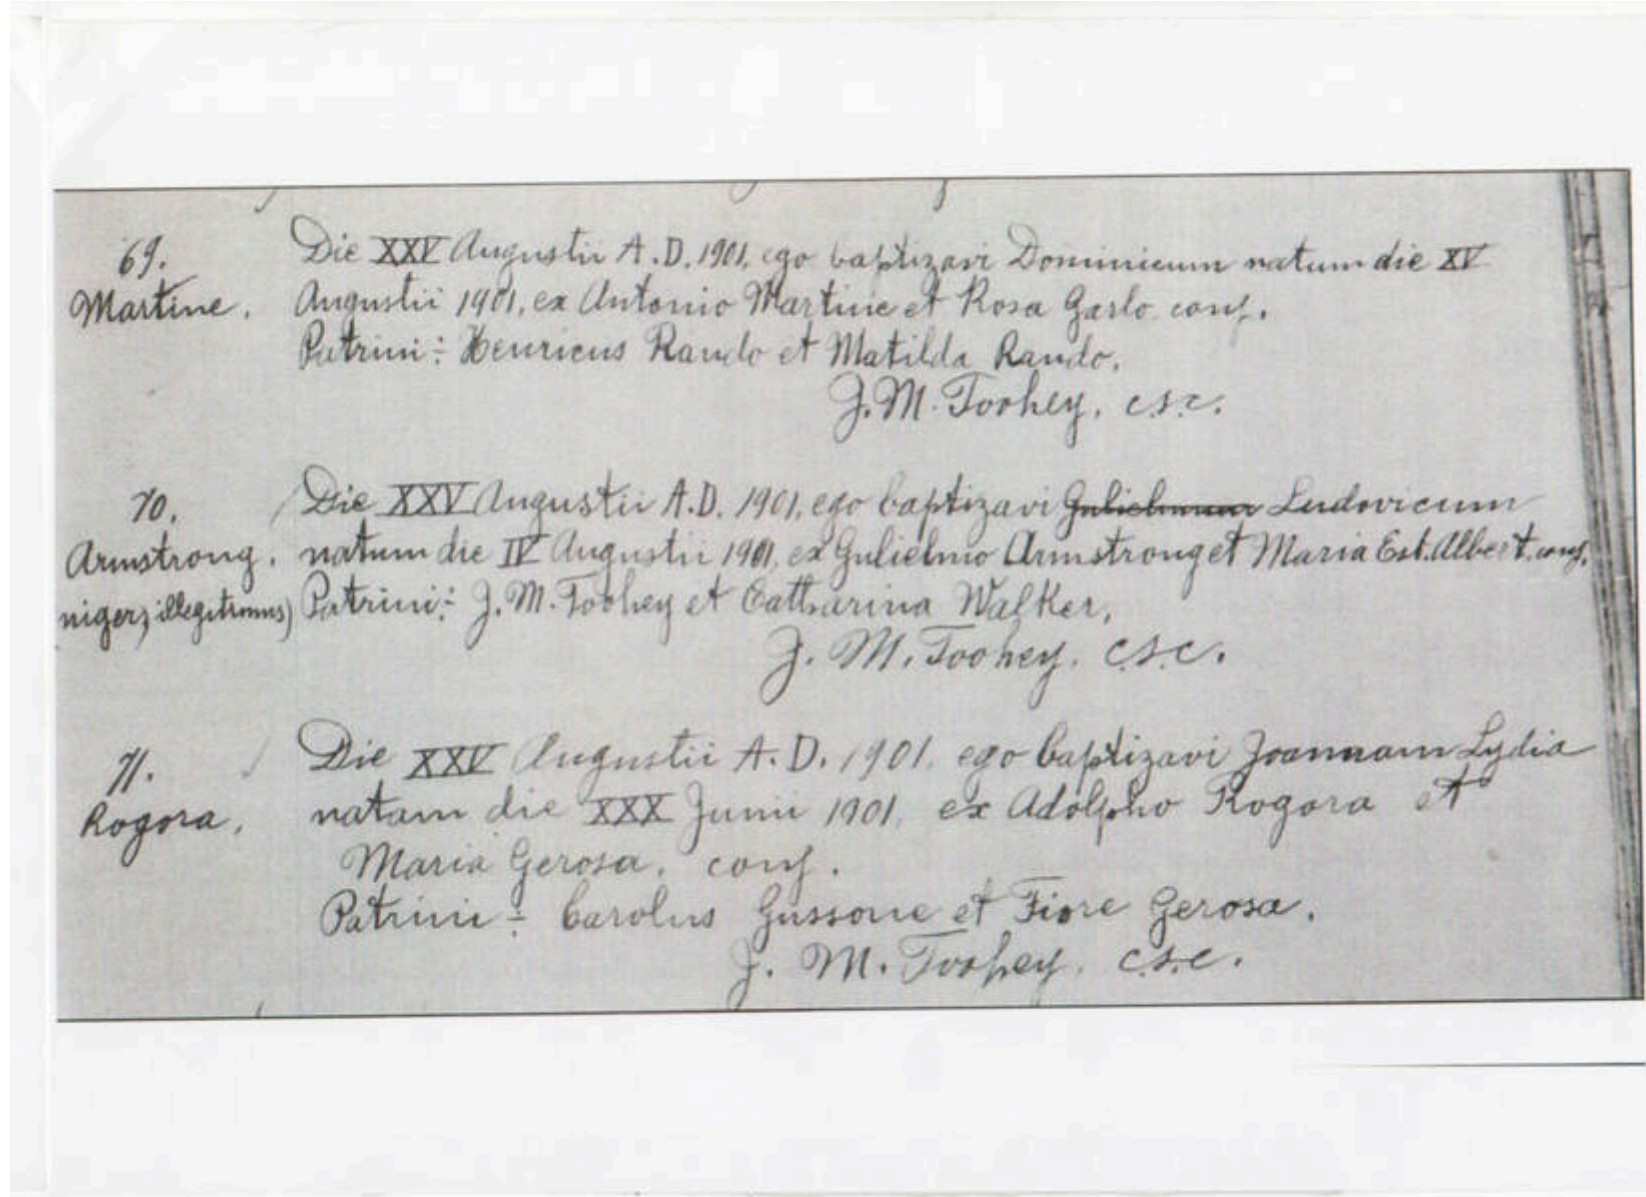 69.
Martine.
Die XXV Augustii A.D. 1901, ego baptizavi Dominicum natum die XV
Augustii 1901, ex Antonio Martine et Rosa Garlo conj.
Patrini:- Henricus Rando et Matilda Rando.
J.M. Toohey, c.s.c.
70.
Armstrong.
niger, illegitimus)
Die XXV Augustii A.D. 1901, ego baptizavi Gulielmum Ludovicum
natum die IV Augustii 1901, ex Gulielmo Armstrong et Maria Est. Albert conj.
Patrini:- J.M. Toohey et Catharina Walker.
J. M. Toohey. c.s.c.
71.
Rogora.
Die XXV Augustii A.D. 1901, ego baptizavi Joannam Lydia
natam die XXX Junii 1901, ex Adolpho Rogora et
Maria Gerosa. conj.
Patrini:- Carolus Gussone et Fiore Gerosa.
J. M. Toohey. c.s.c.